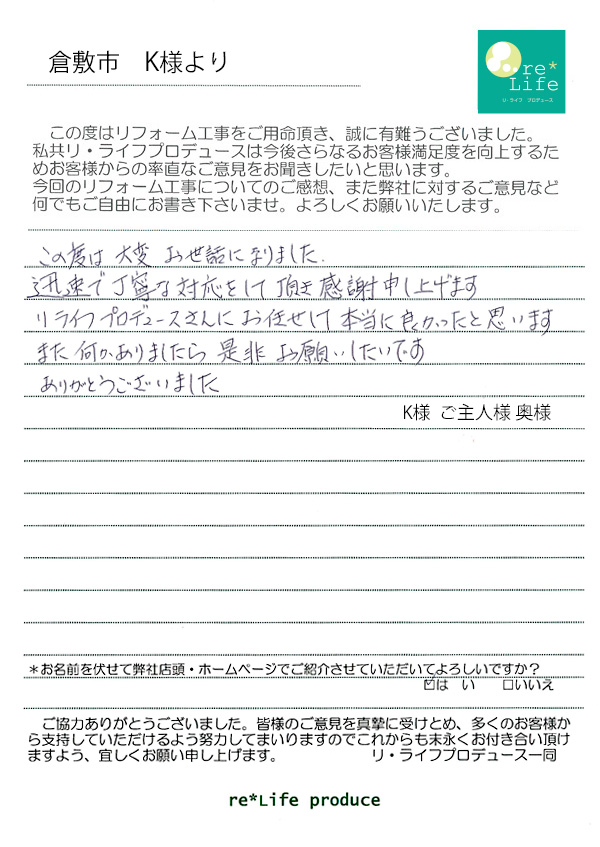 倉敷市　K様より
re*
Life
リ・ライフ　プロデュース
この度はリフォーム工事をご用命頂き、誠に有難うございました。
私共リ・ライフプロデュースは今後さらなるお客様満足度を向上するた
めお客様からの率直なご意見をお聞きしたいと思います。
今回のリフォーム工事についてのご感想、また弊社に対するご意見など
何でもご自由にお書き下さいませ。よろしくお願いいたします。
この度は 大変 お世話になりました.
迅速で丁寧な対応をして頂き 感謝申し上げます
リライフプロデュースさんに お任せして 本当に良かったと思います
また 何かありましたら 是非 お願いしたいです
ありがとうございました
K様 ご主人様 奥様
＊お名前を伏せて弊社店頭・ホームページでご紹介させていただいてよろしいですか？
☑は　い　□いいえ
ご協力ありがとうございました。皆様のご意見を真摯に受けとめ、多くのお客様か
ら支持していただけるよう努力してまいりますのでこれからも末永くお付き合い頂け
ますよう、宜しくお願い申し上げます。　リ・ライフプロデュース一同
re*Life produce